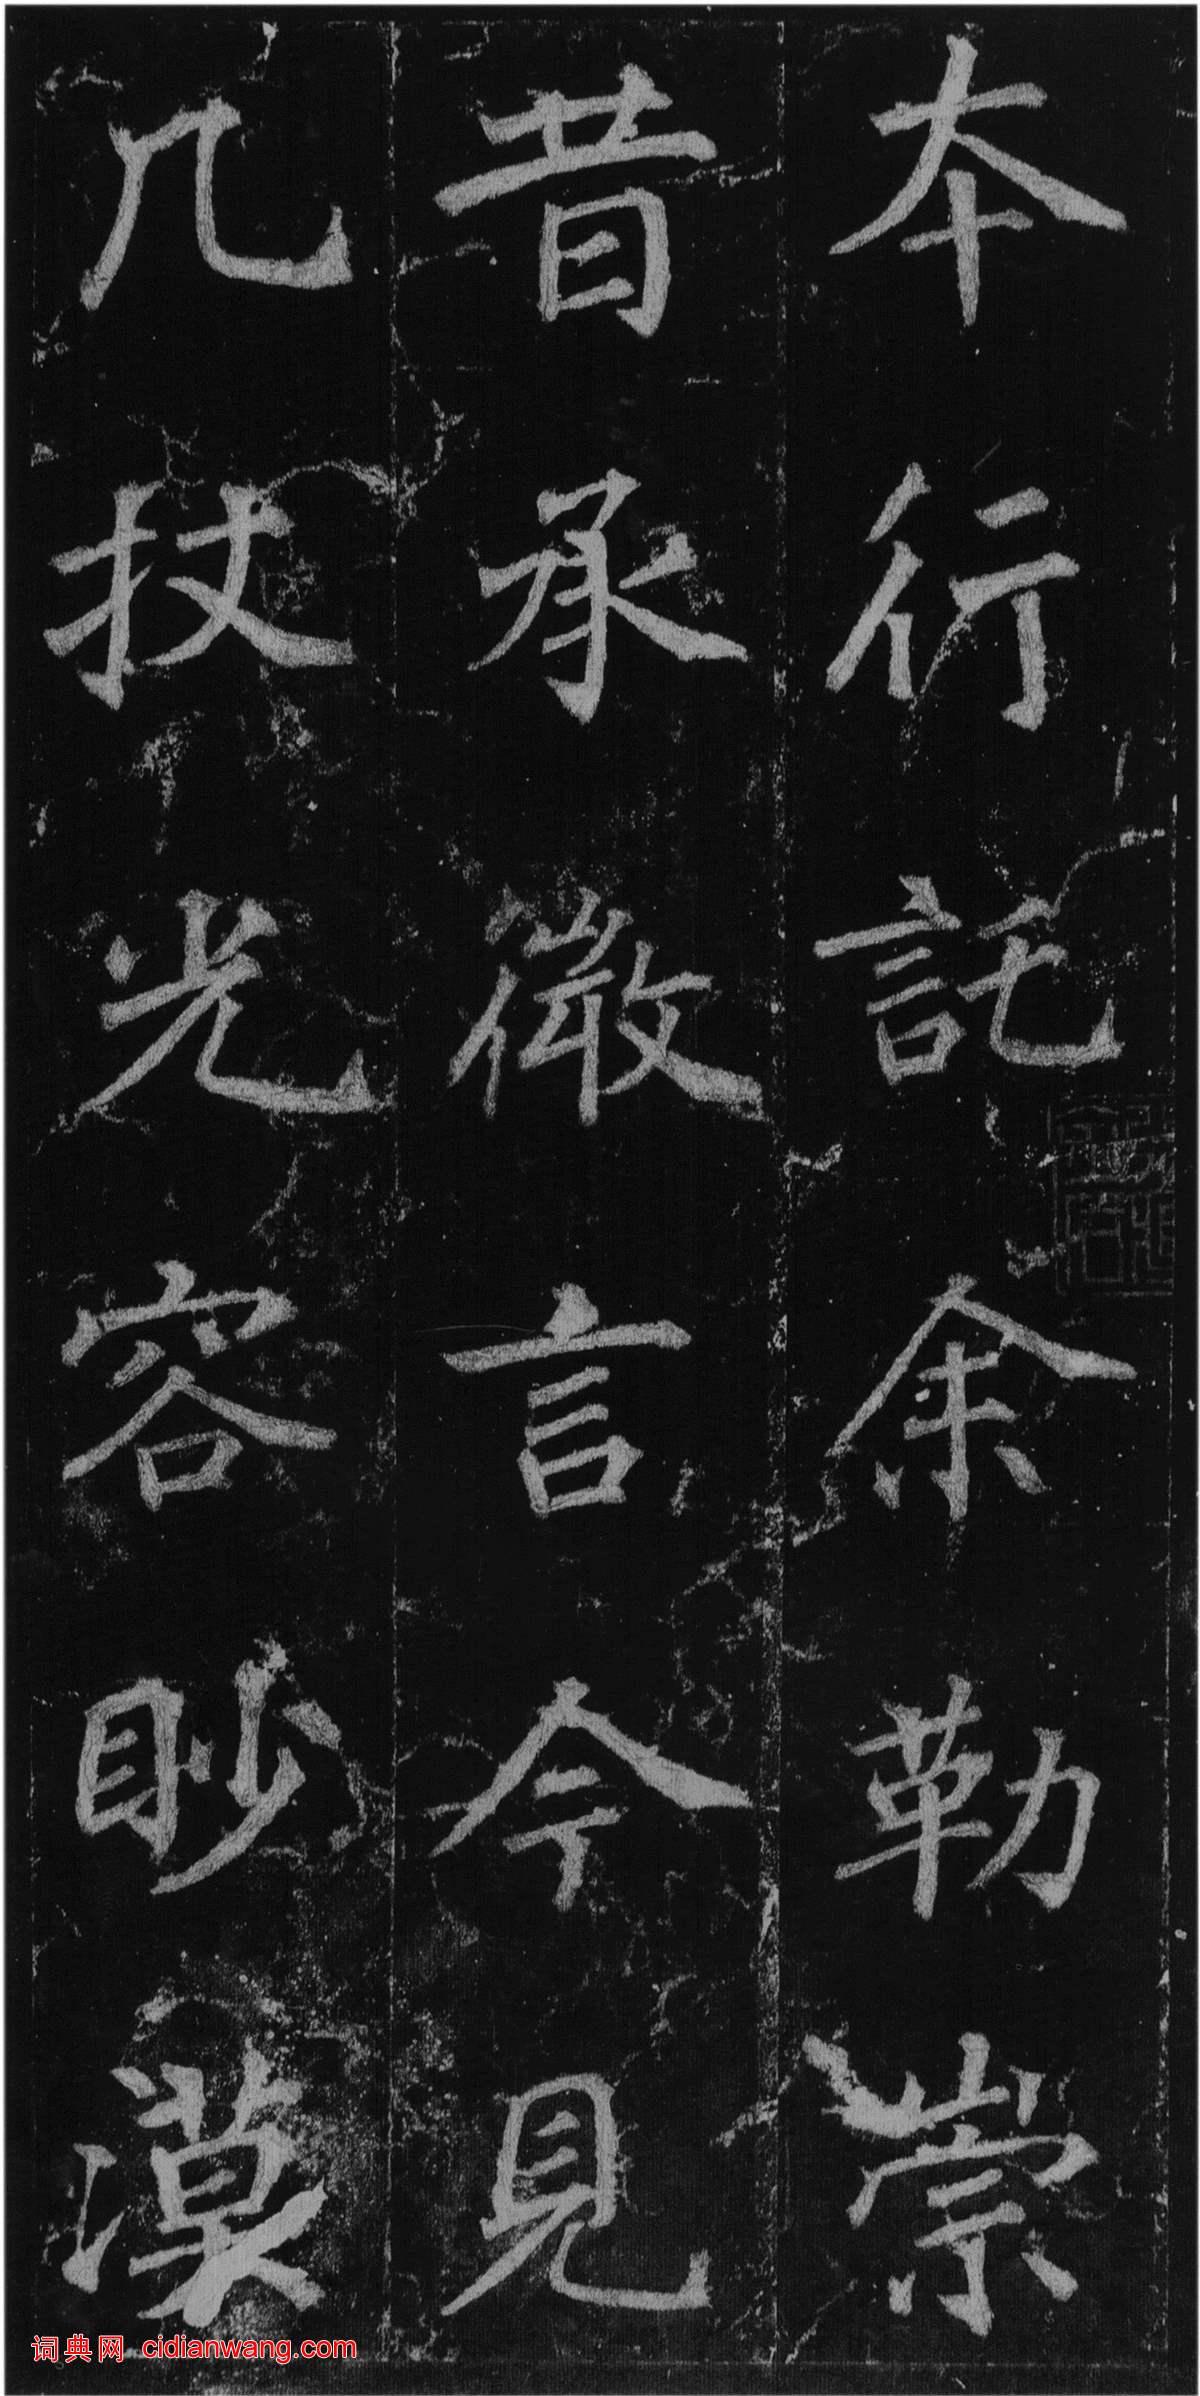 本行託余勒崇
昔承微言今見
几杖光容眇漠
词典网 cidianwang.com